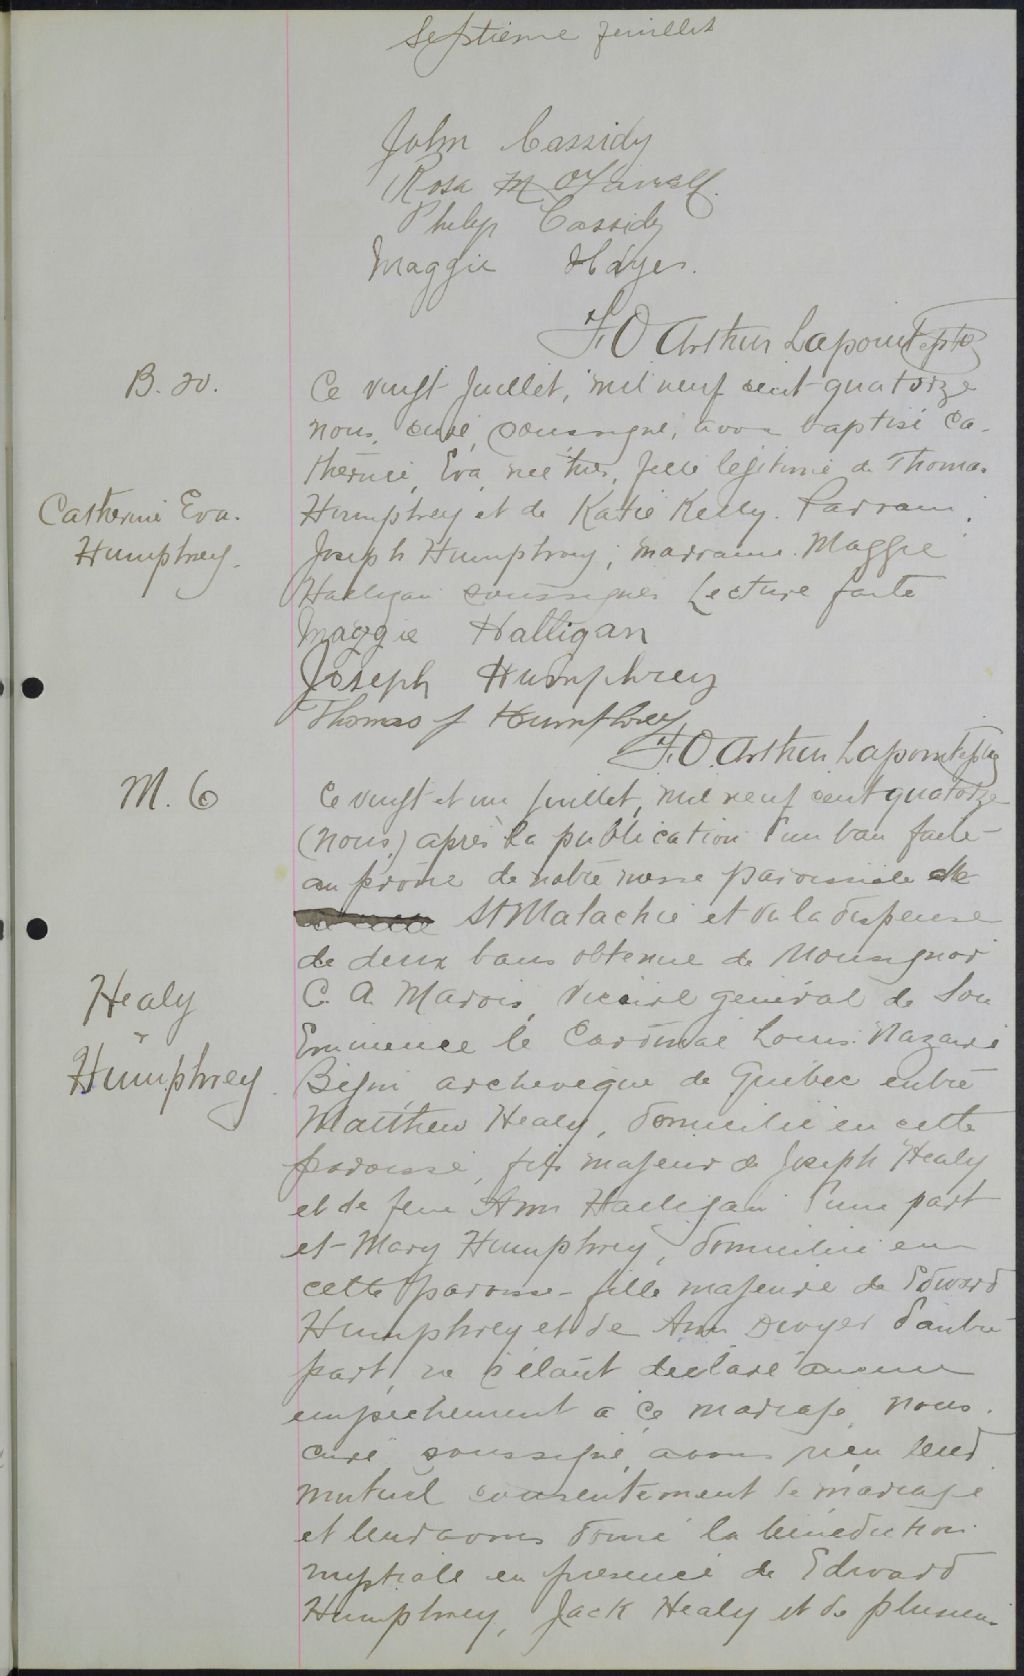 Septieme feuillet
John Cassidy
Rosa M
Philip Cassidy
Maggie Hayes.
F. O Arthur Lapointe ptre
B. 20.
Ce vingt Juillet, mil neuf cent quatorze
nous, curé, soussigné, avons baptisé Ca-
therine, Eva, née hier, fille légitime de Thomas
Catherine Eva.
Humphrey.
Humphrey et de Katie Kelly. Parrain
Joseph Humphrey, marraine Maggie
Halligan soussignés Lecture faite
Maggie Halligan
Joseph Humphrey
Thomas J Humphrey
F. O. Arthur Lapointe ptre
M. 6
Ce vingt et un juillet, mil neuf cent quatorze
(nous,) après la publication d'un ban faite
au prône de notre messe paroissiale de
St Malachie et vu la dispense
de deux bans obtenue de Monsignor
Healy
&
Humphrey
C. A. Marois, vicaire général de Son
Eminence le Cardinal Louis Nazaire
Bégin, archevêque de Québec entre
Matthew Healy, domicilié en cette
paroisse, fils majeur de Joseph Healy
et de feue Ann Halligan d'une part
et Mary Humphrey, domiciliée en
cette paroisse fille majeure de Edward
Humphrey et de Ann Dwyer d'autre
part, ne s'étant déclaré aucun
empêchement à ce mariage nous.
curé soussigné, avons reçu leur
mutuel consentement de mariage
et leur avons donné la bénédiction
nuptiale en présence de Edward
Humphrey, Jack Healy et de plusieurs